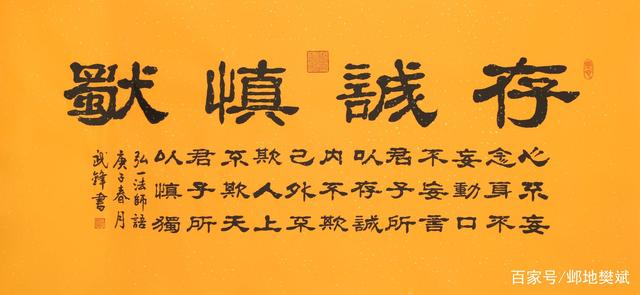 存誠慎獨
心不妄
念身不
妄動口
不妄言
君子所
以存誠
内不欺
己外不
欺人上
不欺天
君子所
以慎獨
弘一法師語
庚子春月
武鋒書
百家号/邺地樊斌